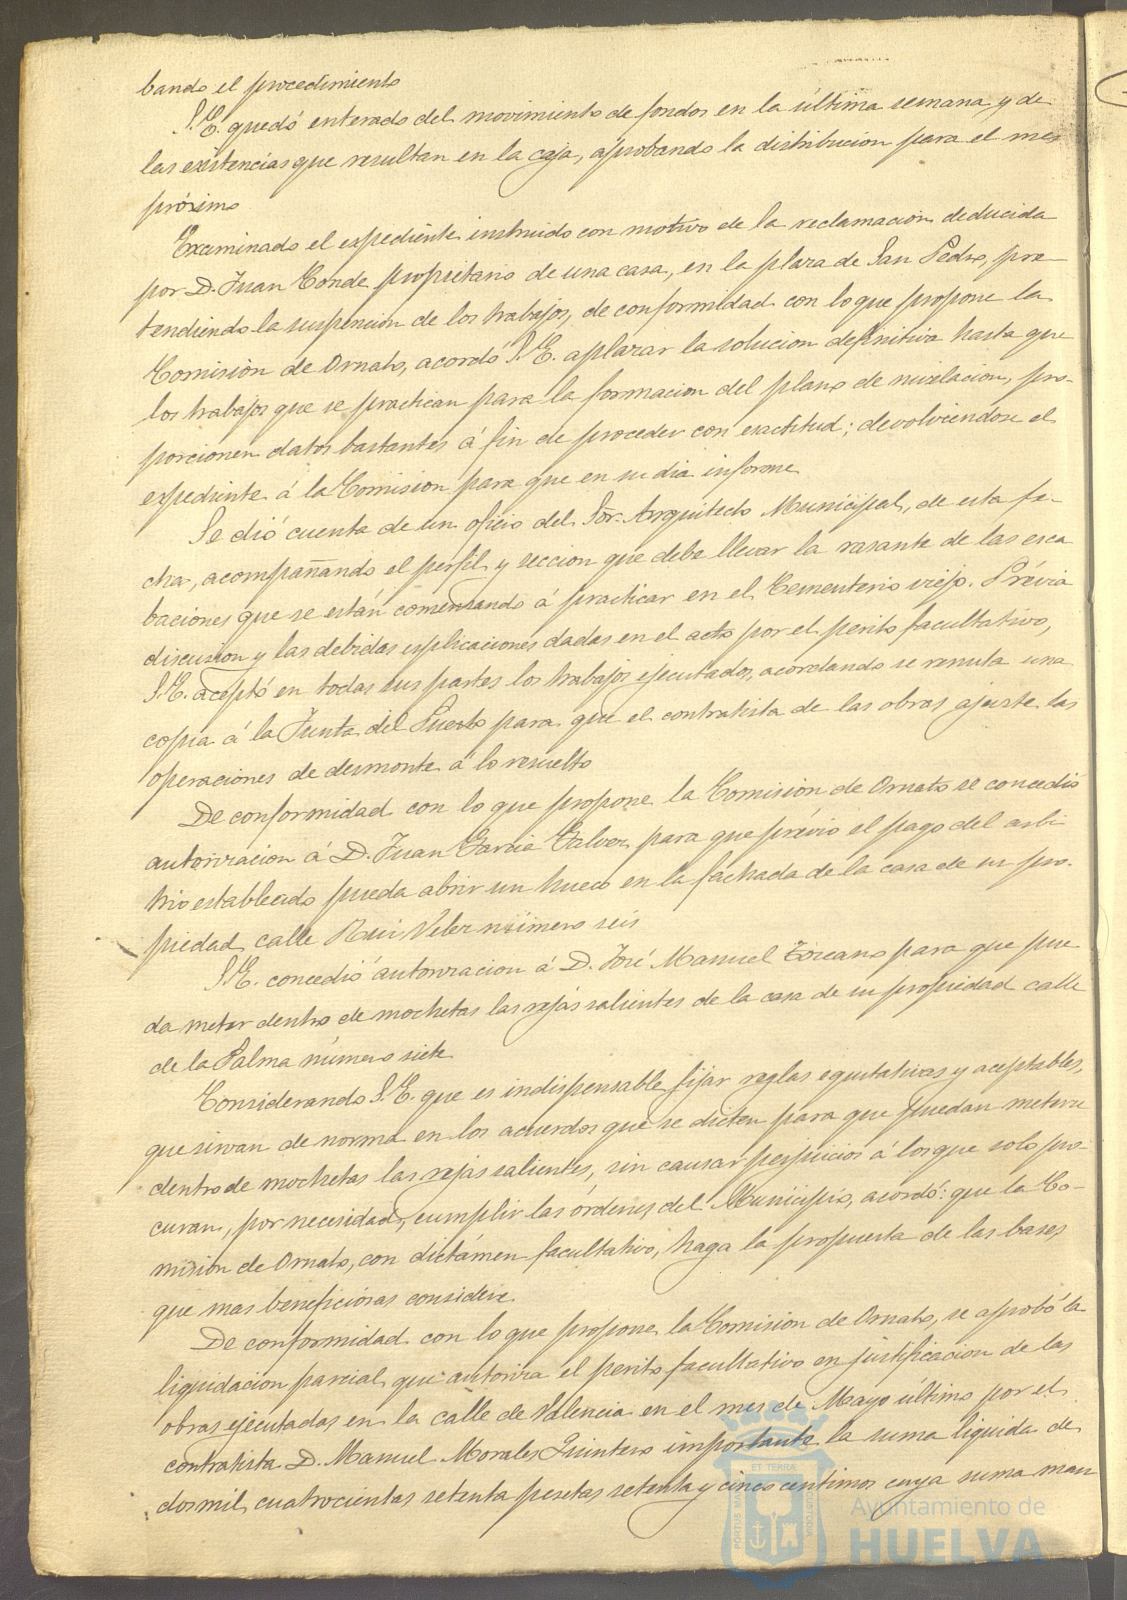 bando el procedimiento
S.E. quedó enterado del movimiento de fondos en la última semana y de
las existencias que resultan en la caja, aprobando la distribucion para el mes
próximo
Examinado el espediente instruido con motivo de la reclamacion deducida
por D. Juan Conde propietario de una casa, en la plaza de San Pedro, pre-
tendiendo la suspencion de los trabajos, de conformidad con lo que propone la
Comision de Ornato, acordó S.E. aplazar la solucion definitiva hasta que
los trabajos que se practican para la formacion del plano de nivelacion, pro-
porcionen datos bastantes á fin de proceder con exactitud; devolviendose el
espediente á la Comision para que en su dia informe
Se dió cuenta de un oficio del Sor. Arquitecto Municipal, de esta fe-
cha, acompañando el perfil y seccion que debe llevar la rasante de las esca
baciones que se están comenzando á practicar en el Cementerio viejo. Prévia
discusion y las debidas esplicaciones dadas en el acto por el perito facultativo,
S.E. aceptó en todas sus partes los trabajos ejecutados, acordando se remita una
copia á la Junta del Puerto para que el contratista de las obras ajuste las
operaciones de desmonte á lo resuelto
De conformidad con lo que propone la Comision de Ornato se concedió
autorizacion á D. Juan Garcia Galvez para que prévio el pago del arbi
trio establecido pueda abrir un hueco en la fachada de la casa de su pro-
piedad calle Rui Velez número seis
S.E. concedió autorizacion á D. José Manuel Toscano para que pue
da meter dentro de mochetas las rejas salientes de la casa de su propiedad calle
de la Palma número siete
Considerando S.E. que es indispensable fijar reglas equitativas y aceptables,
que sirvan de norma en los acuerdos que se dicten para que puedan meterse
dentro de mochetas las rejas salientes, sin causar perjuicios á los que solo pro-
curan, por necesidad, cumplir las órdenes del Municipio, acordó: que la Co-
mision de Ornato, con dictámen facultativo, haga la propuesta de las bases
que mas beneficiosas considere
De conformidad con lo que propone la Comision de Ornato, se aprobó la
liquidacion parcial que autoriza el perito facultativo en justificacion de las
obras ejecutadas en la calle de Valencia en el mes de Mayo último por el
contratista D. Manuel Morales Quintero importante la suma liquida de
dos mil cuatrocientas setenta pesetas setenta y cinco centimos cuya suma man
Ayuntamiento de
HUELVA